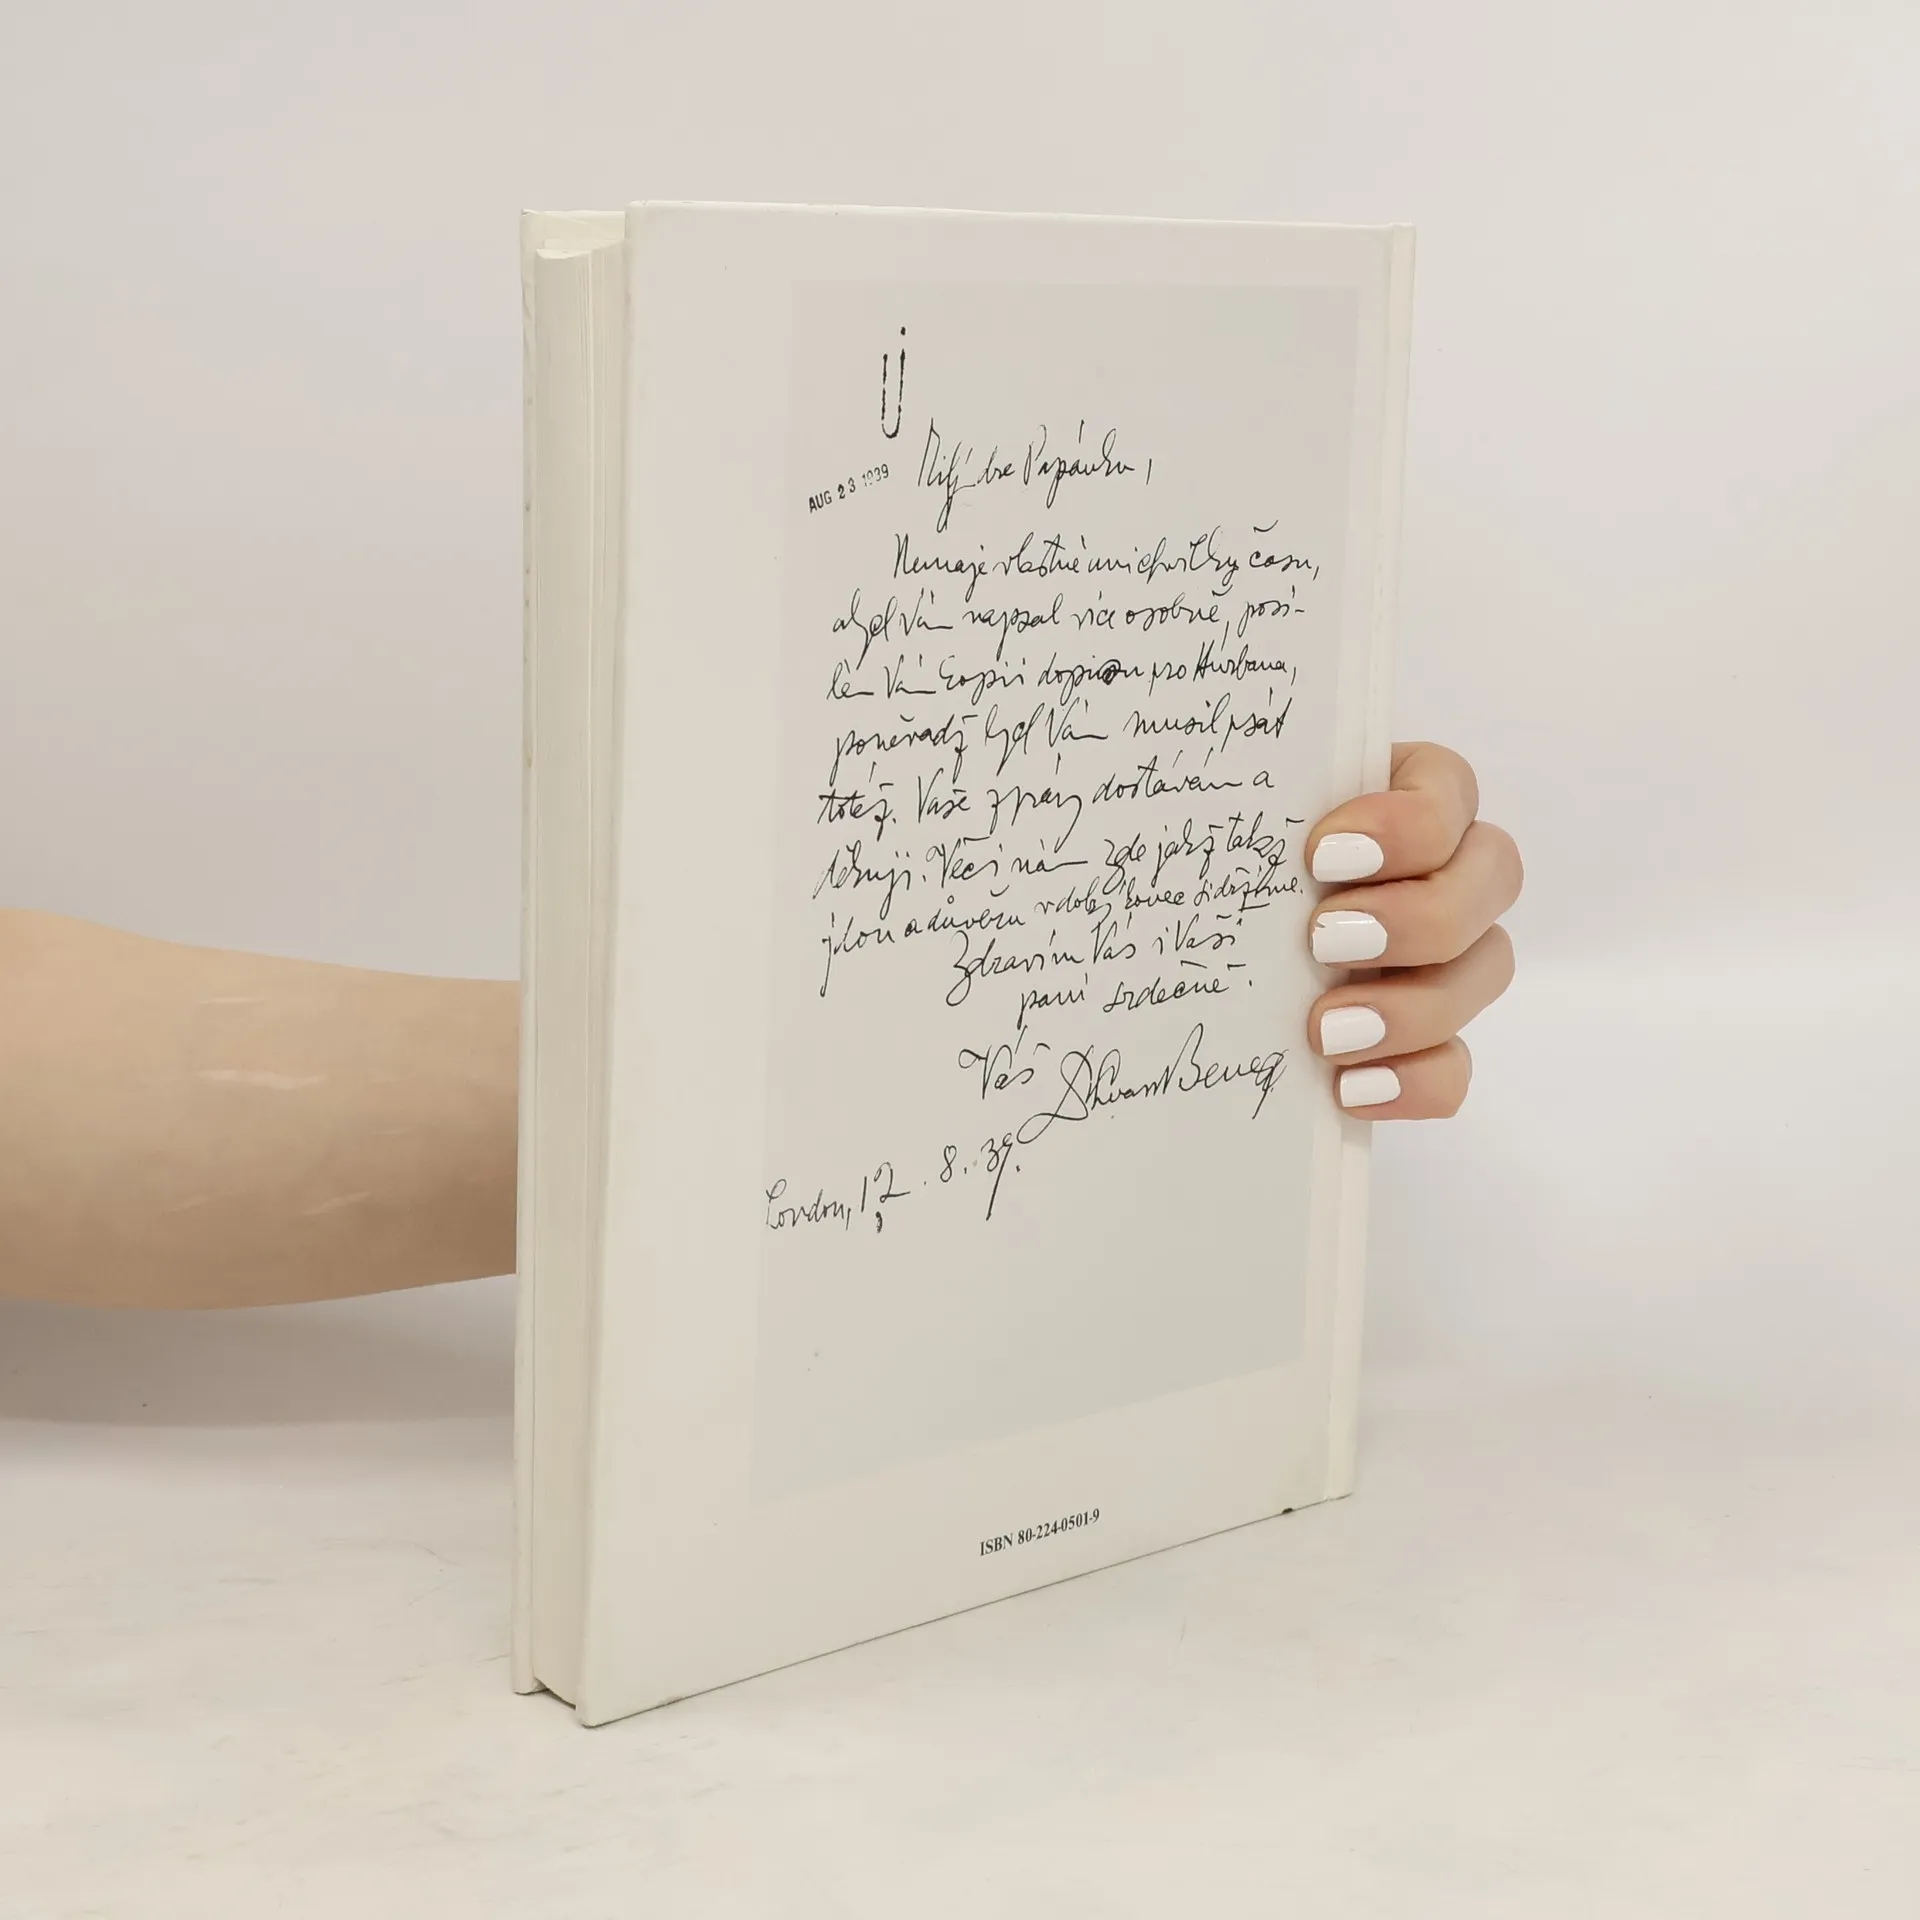 AUG 23 1939
Milý dre Papánku,
Nemaje vlastně ani chvilky času,
abych Vám napsal více osobně, posí-
lám Vám kopii dopisu pro Hurbana,
poněvadž bych Vám musil psát
totéž. Vaše zprávy dostávám a
děkuji. Věci nám zde jakž takž
jdou a důvěru v dobrý konec si držíme.
Zdravím Vás i Vaši
paní srdečně.
Váš Dr Edvard Beneš
London, 12. 8. 39.
ISBN 80-224-0501-9